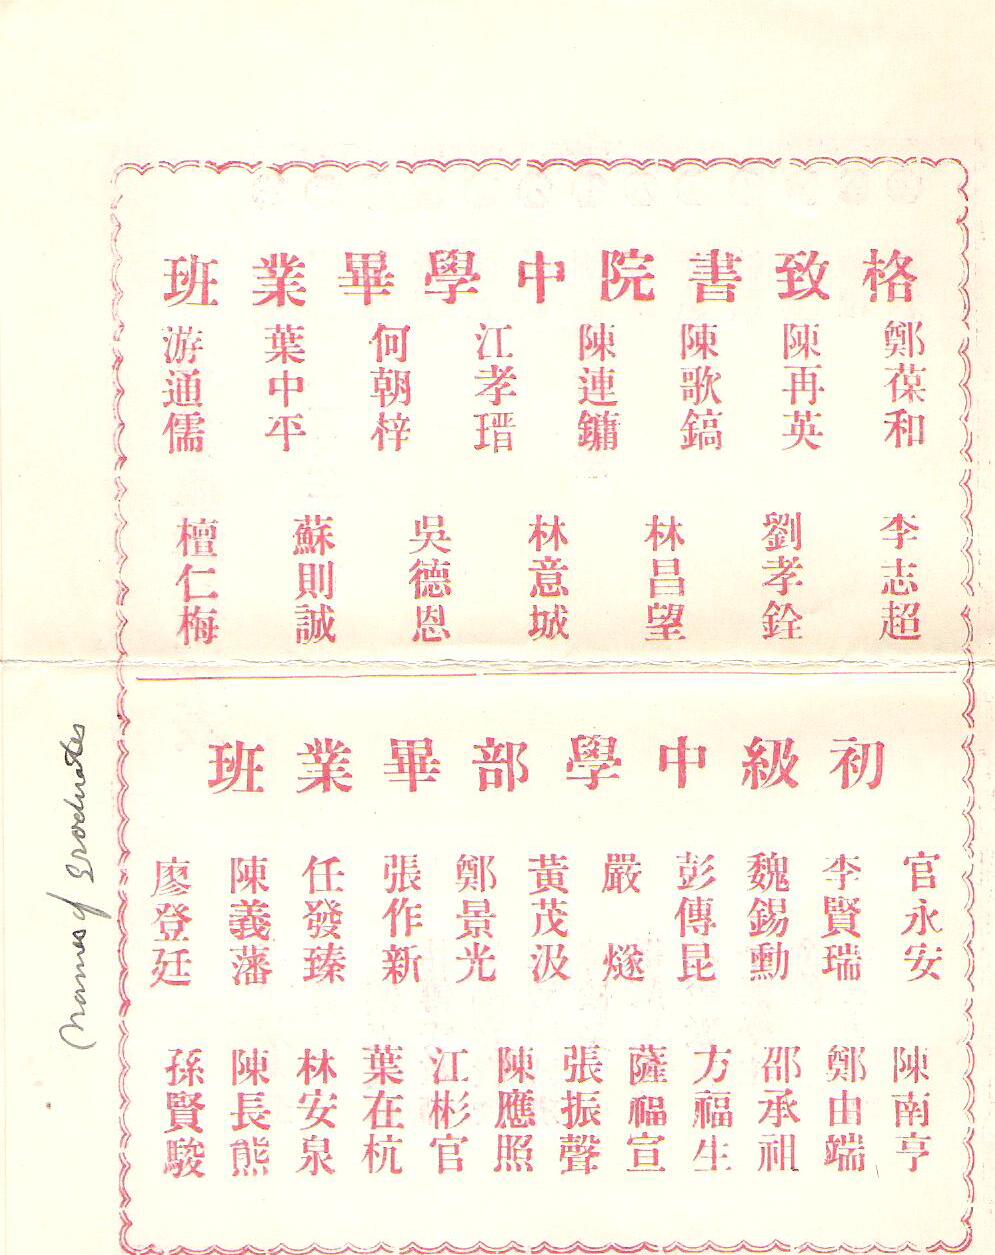 格致書院中學畢業班
鄭葆和
陳再英
陳歌鎬
陳連鏞
江孝瑨
何朝梓
葉中平
游通儒
李志超
劉孝銓
林昌望
林意城
吳德恩
蘇則誠
檀仁梅
初級中學部畢業班
官永安
李賢瑞
魏錫勳
彭傳昆
嚴燧
黃茂汲
鄭景光
張作新
任發臻
陳義藩
廖登廷
陳南亨
鄭由端
邵承祖
方福生
薩福宣
張振聲
陳應照
江彬官
葉在杭
林安泉
陳長熊
孫賢駿
Names of Graduates